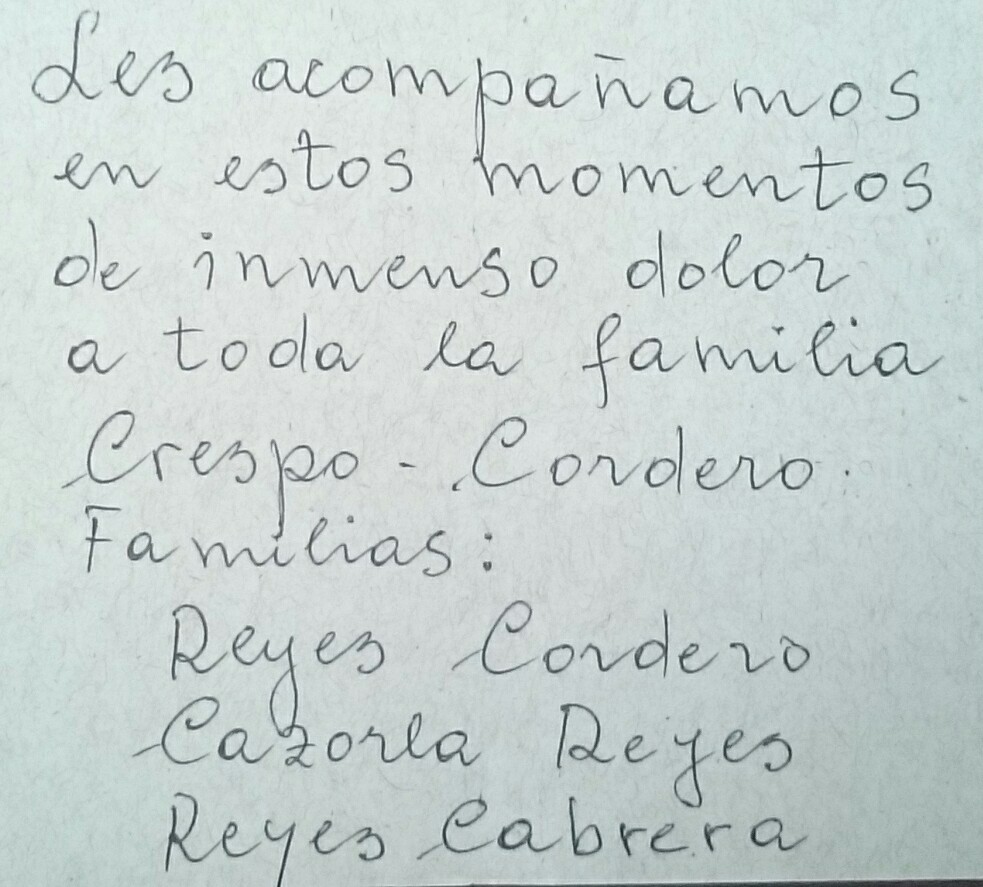 Les acompañamos
en estos momentos
de inmenso dolor
a toda la familia
Crespo - Cordero.
Familias:
Reyes Cordero
Cazorla Reyes
Reyes Cabrera